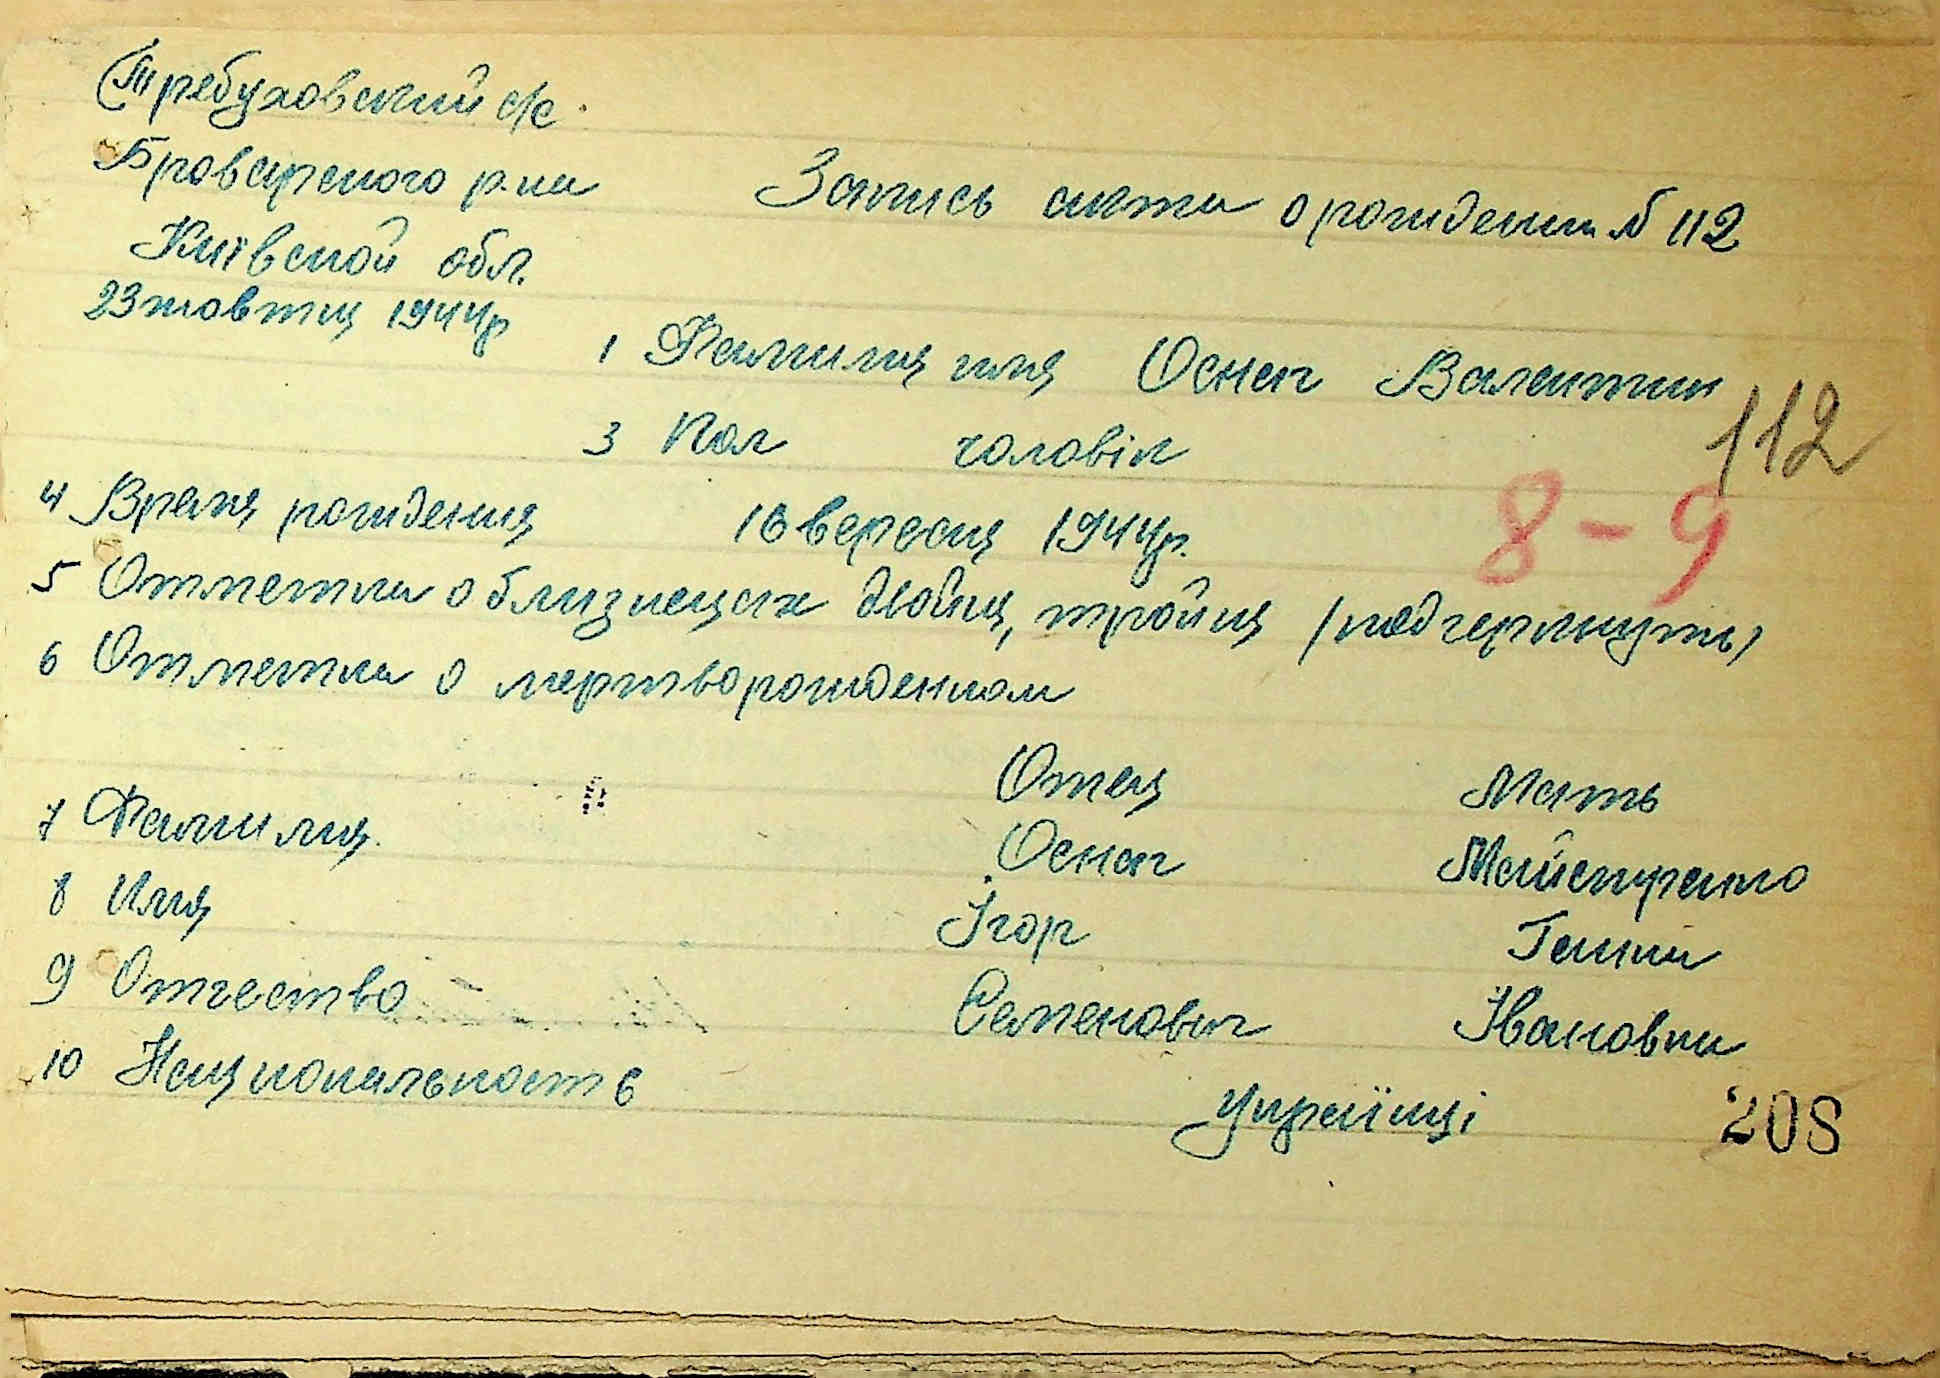 Требуховский с/с
Броварского р-на
Київской обл.
23 жовтня 1944р
Запись акта о рождении № 112
1 Фамилия имя Оснач Валентин
3 Пол чоловік
112
4 Время рождения 16 вересня 1944р.
8-9
5 Отметка о близнецах двойня, тройня (подчеркнуть)
6 Отметка о мертворожденном
Отец Мать
7 Фамилия Оснач Майстренко
8 Имя Ігор Ганна
9 Отчество Семенович Івановна
10 Национальность українці
208